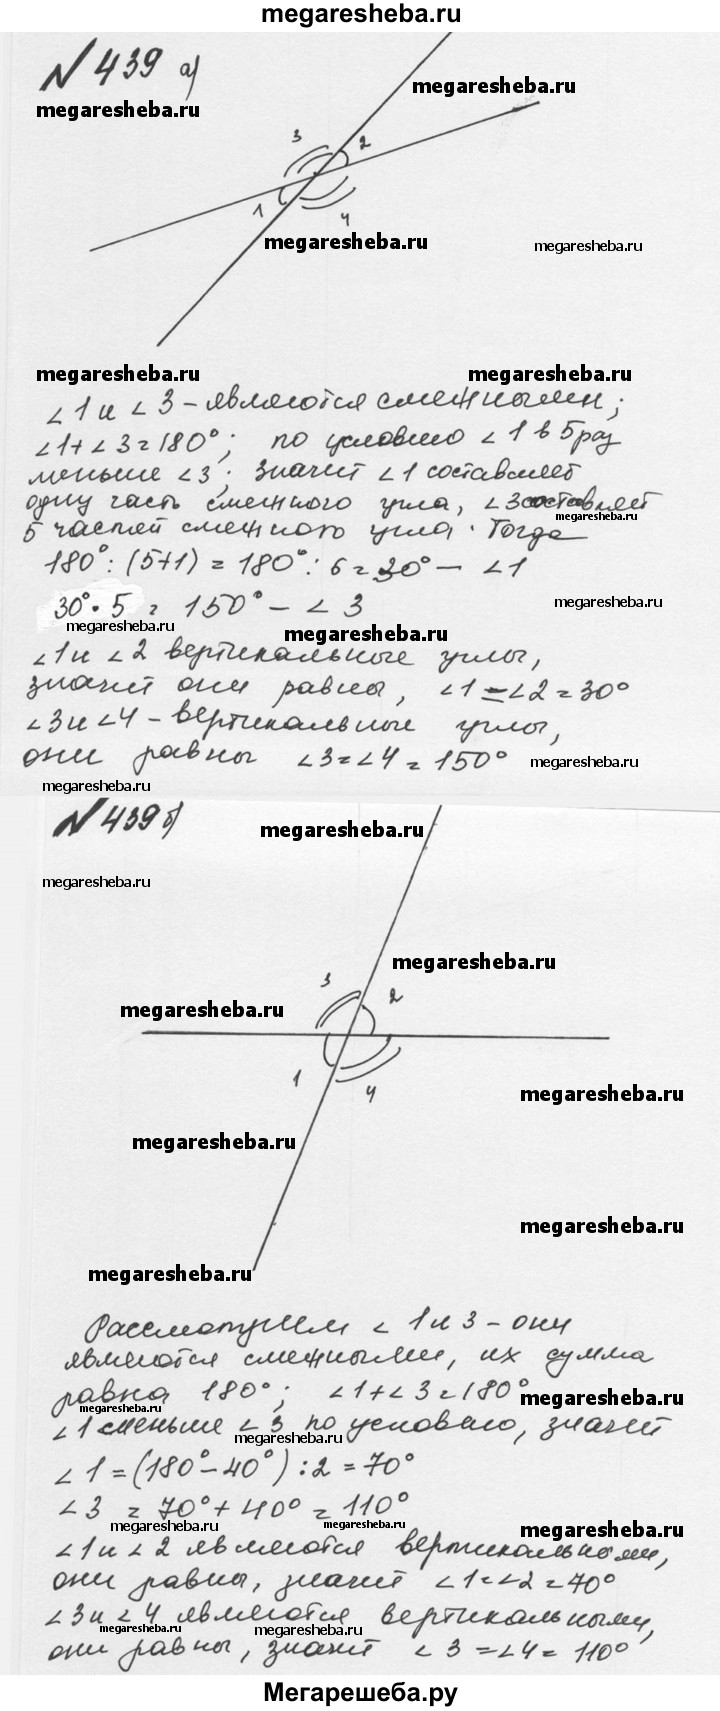 megaresheba.ru
№439 а)
megaresheba.ru
megaresheba.ru
3
2
1
4
megaresheba.ru
megaresheba.ru
megaresheba.ru
megaresheba.ru
∠1 и ∠3 - являются смежными;
∠1+∠3=180°; по условию ∠1 в 5 раз
меньше ∠3; значит ∠1 составляет
одну часть смежного угла, ∠3 составляет
megaresheba.ru
5 частей смежного угла. Тогда
180°:(5+1) = 180°:6=30° — ∠1
megaresheba.ru
30°·5 = 150° — ∠3
megaresheba.ru
megaresheba.ru
∠1 и ∠2 вертикальные углы,
значит они равны, ∠1=∠2=30°
∠3 и ∠4 - вертикальные углы,
они равны ∠3=∠4=150°
megaresheba.ru
megaresheba.ru
№439 б)
megaresheba.ru
megaresheba.ru
megaresheba.ru
3
2
megaresheba.ru
1
4
megaresheba.ru
megaresheba.ru
megaresheba.ru
megaresheba.ru
Рассмотрим ∠1 и 3 - они
являются смежными, их сумма
равна 180°; ∠1+∠3=180°
megaresheba.ru
megaresheba.ru
∠1 меньше ∠3 по условию, значит
megaresheba.ru
∠1=(180°-40°):2=70°
∠3 = 70°+40°=110°
megaresheba.ru
megaresheba.ru
megaresheba.ru
∠1 и ∠2 являются вертикальными,
они равны, значит ∠1=∠2=70°
∠3 и ∠4 являются вертикальными,
megaresheba.ru
megaresheba.ru
они равны, значит ∠3=∠4=110°
Мегарешеба.ру